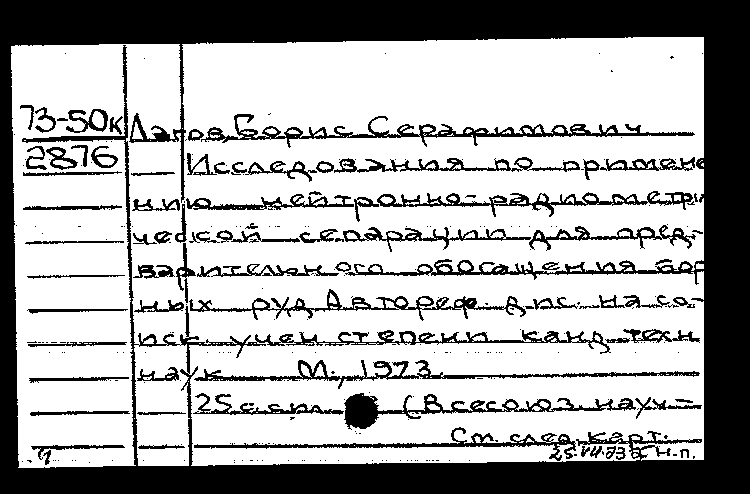 73-50к Лагов, Борис Серафимович
2876 Исследования по примене
нию нейтронно-радиометри
ческой сепарации для пред-
варительного обогащения бор
ных руд Автореф. дис. на со-
иск. учен степени канд. техн
наук М., 1973.
25 с. спл. (Всесоюз. науч-
См. след. карт.
25.VII.73 Н-п.